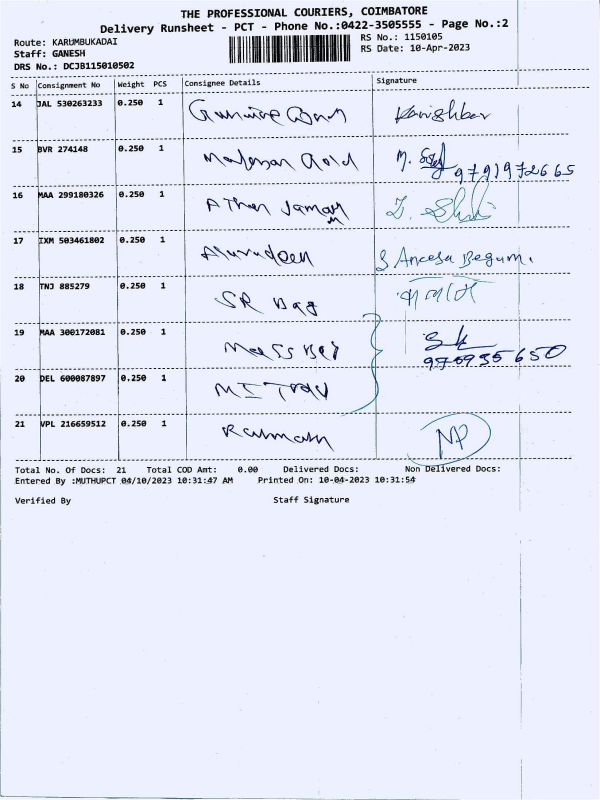 THE PROFESSIONAL COURIERS, COIMBATORE
Delivery Runsheet - PCT - Phone No.:0422-3505555 - Page No.:2
Route: KARUMBUKADAI
RS No.: 1150105
Staff: GANESH
RS Date: 10-Apr-2023
DRS No.: DCJB115010502
S No Consignment No Weight PCS Consignee Details Signature
14 JAL 530263233 0.250 1
15 BVR 274148 0.250 1 Gold M.
9791972665
16 MAA 299180326 0.250 1 Athar Jamath
17 IXM 503461802 0.250 1 S Aneesa Begum.
18 TNJ 885279 0.250 1 SR Bag
19 MAA 300172081 0.250 1 Mass Bag
20 DEL 600087897 0.250 1 MI Trad
21 VPL 216659512 0.250 1 Rahmath NP
Total No. Of Docs: 21 Total COD Amt: 0.00 Delivered Docs: Non Delivered Docs:
Entered By :MUTHUPCT 04/10/2023 10:31:47 AM Printed On: 10-04-2023 10:31:54
Verified By Staff Signature